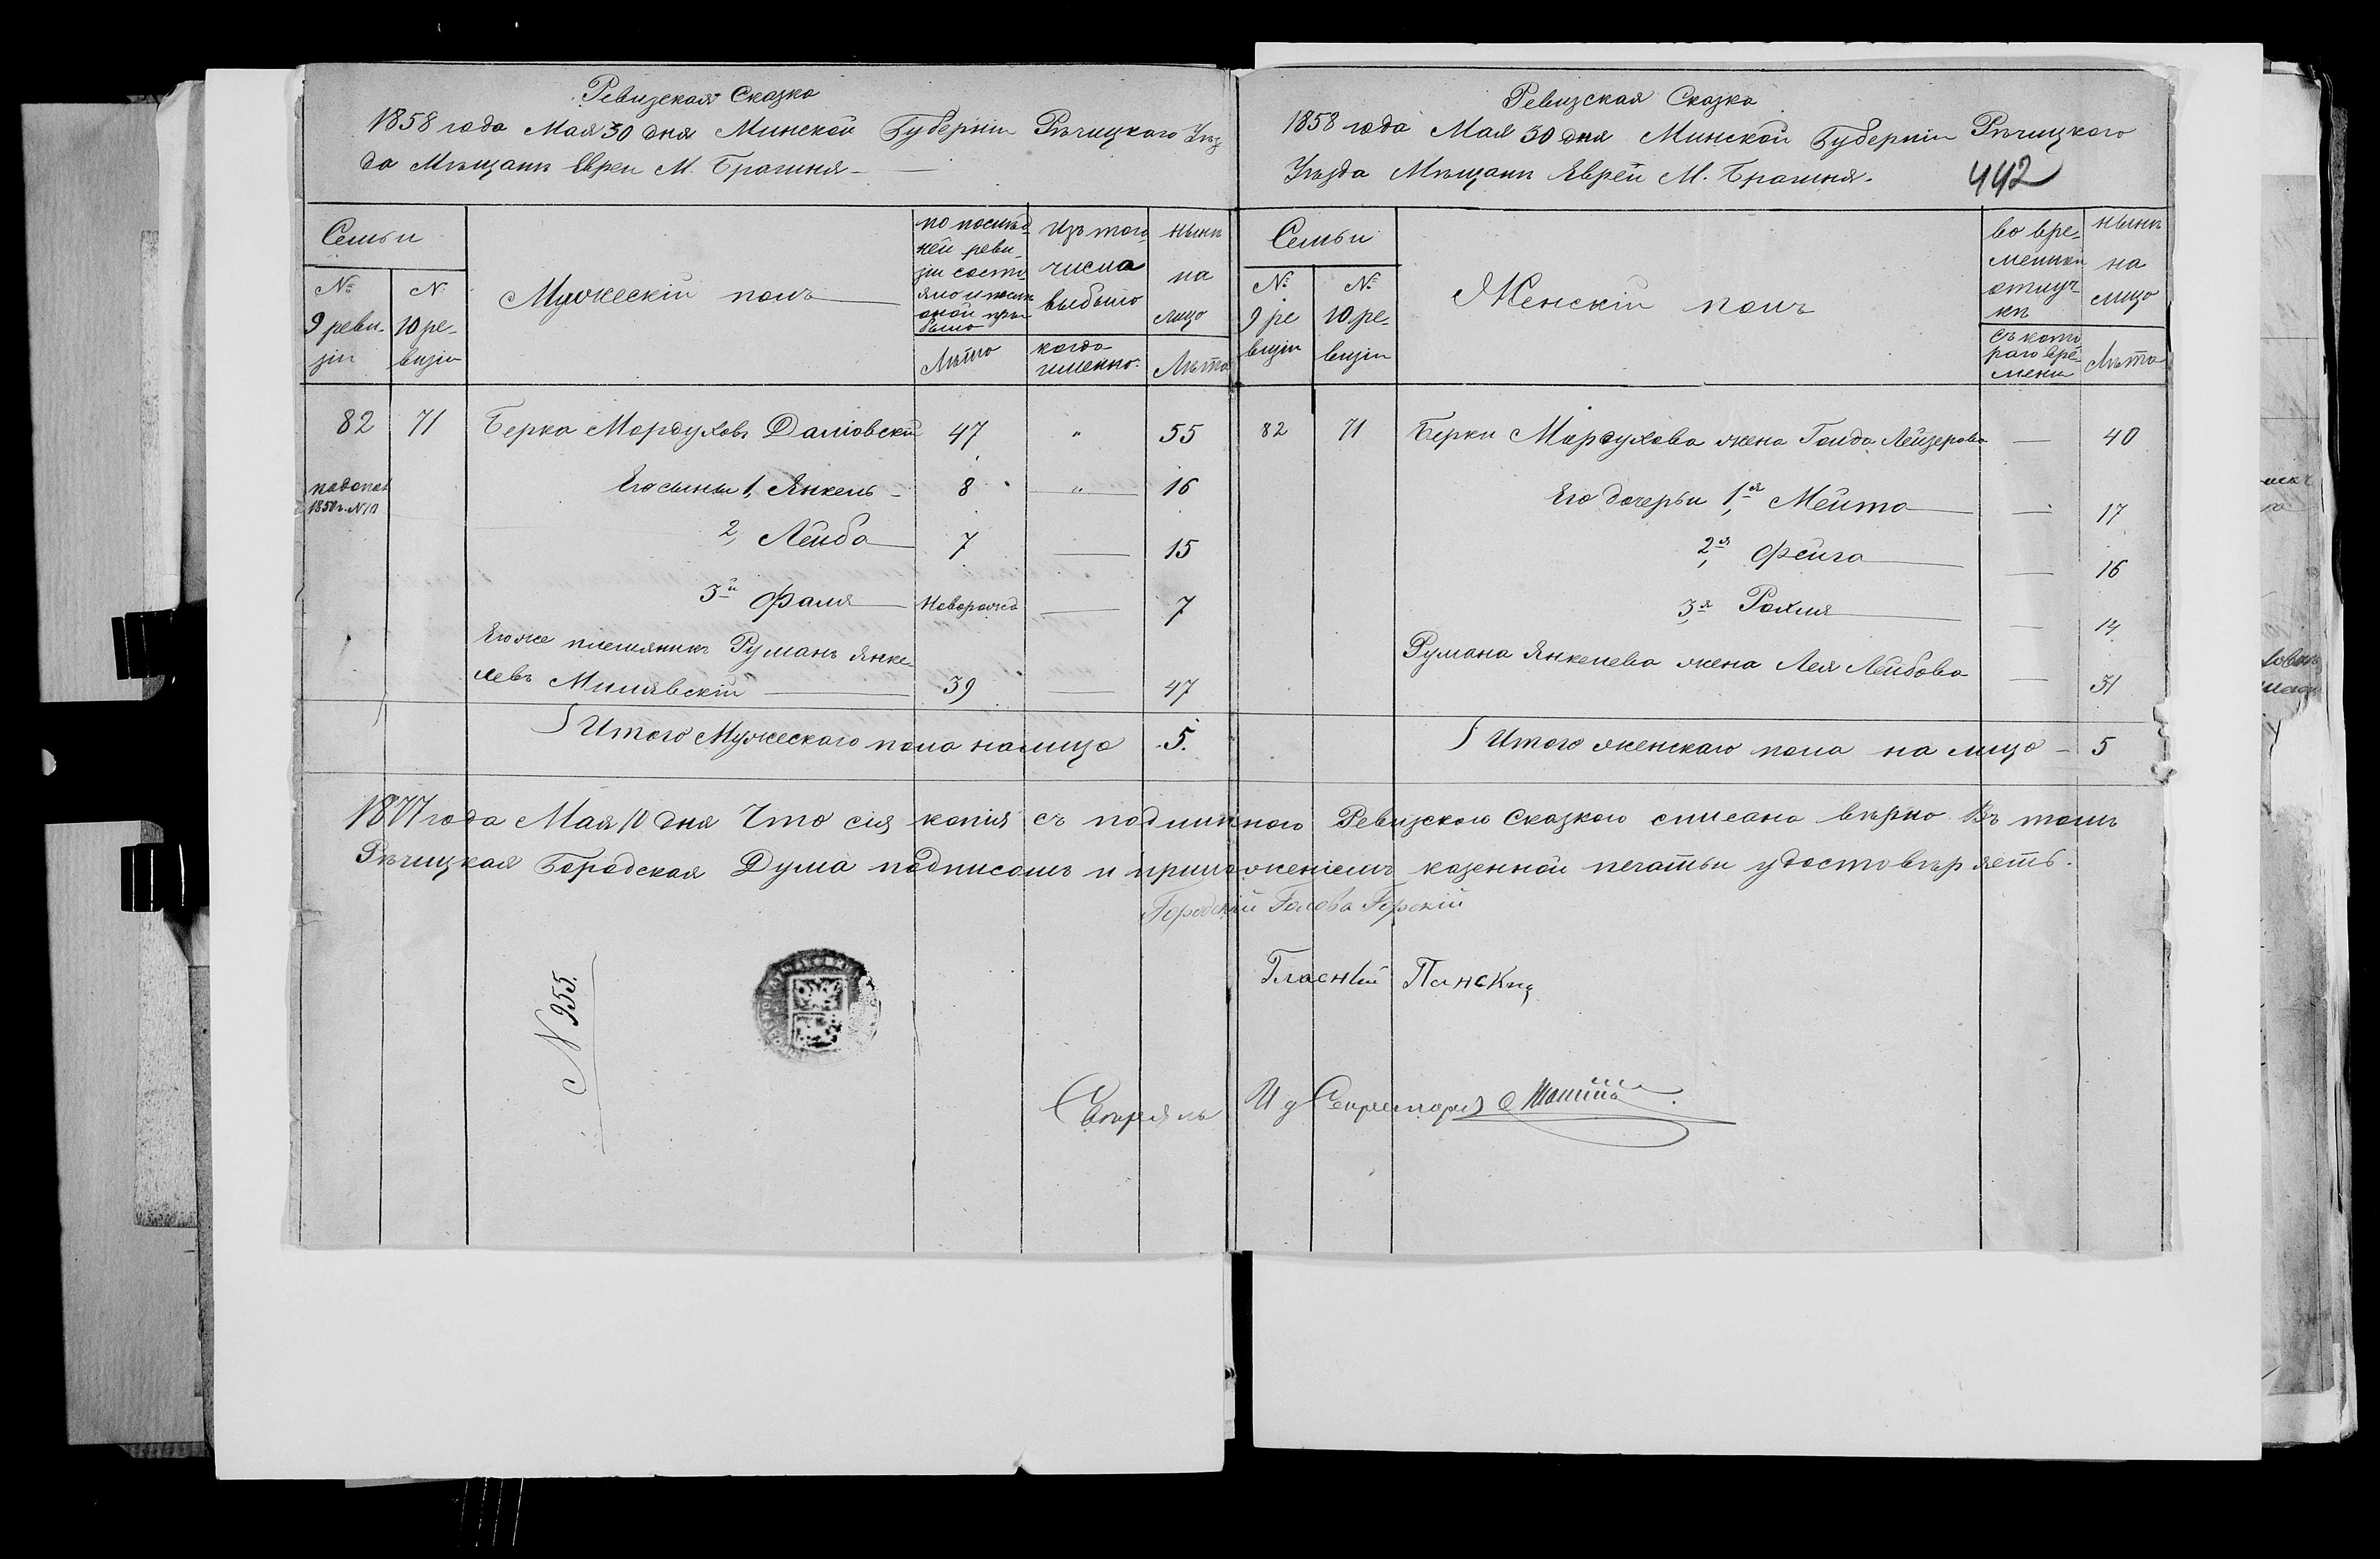 Ревизская Сказка
1858 года Мая 30 дня Минской Губерніи Рѣчицкого Уѣз
да Мѣщанъ Евреи М. Брагиня
Семьи
№ 9 ревизіи
N 10 ревизіи
Мужескій полъ
по послѣд
ней реви
зіи состо
яло и послѣ
оной при
было
Лѣта
Изъ того
числа
выбыло
когда
именно.
нынѣ
на
лицо
Лѣта
82 71 Берка Мордуховъ Даліовскій 47 " 55
подопол
1850 г. N 10
Его сыны 1, Янкель 8 " 16
2, Лейба 7 — 15
3й Фаля новорожд — 7
Его же племяникъ Руманъ Янке
левъ Милявскій 39 — 47
Итого Мужескаго пола на лицо 5.
Ревизская Сказка
1858 года Мая 30 дня Минской Губерніи Рѣчицкого
Уѣзда Мѣщанъ Еврей М. Брагиня.
442
Семьи
№ 9 ревизіи
№ 10 ревизіи
Женскій полъ
во вре-
менной
отлуч-
кѣ
съ кото
раго вре-
мени
нынѣ
на
лицо
Лѣта
82 71 Берки Мордухова жена Гонда Лейзерова — 40
Его дочерьи 1я, Мейта — 17
2я, Фейга — 16
3я, Рохля — 14
Румана Янкелева жена Лея Лейбова — 31
Итого женскаго пола на лицо — 5
1877 года Мая 10 дня Что сія копія съ подлинного Ревизского Сказкого списана вѣрно Въ томъ
Рѣчицкая Городская Дума подписомъ и приложеніемъ казенной печатьи удостовѣряетъ.
Городскій Голова Горскій
Гласный Пинскій
N 955.
Секретарь
И д Секретаря